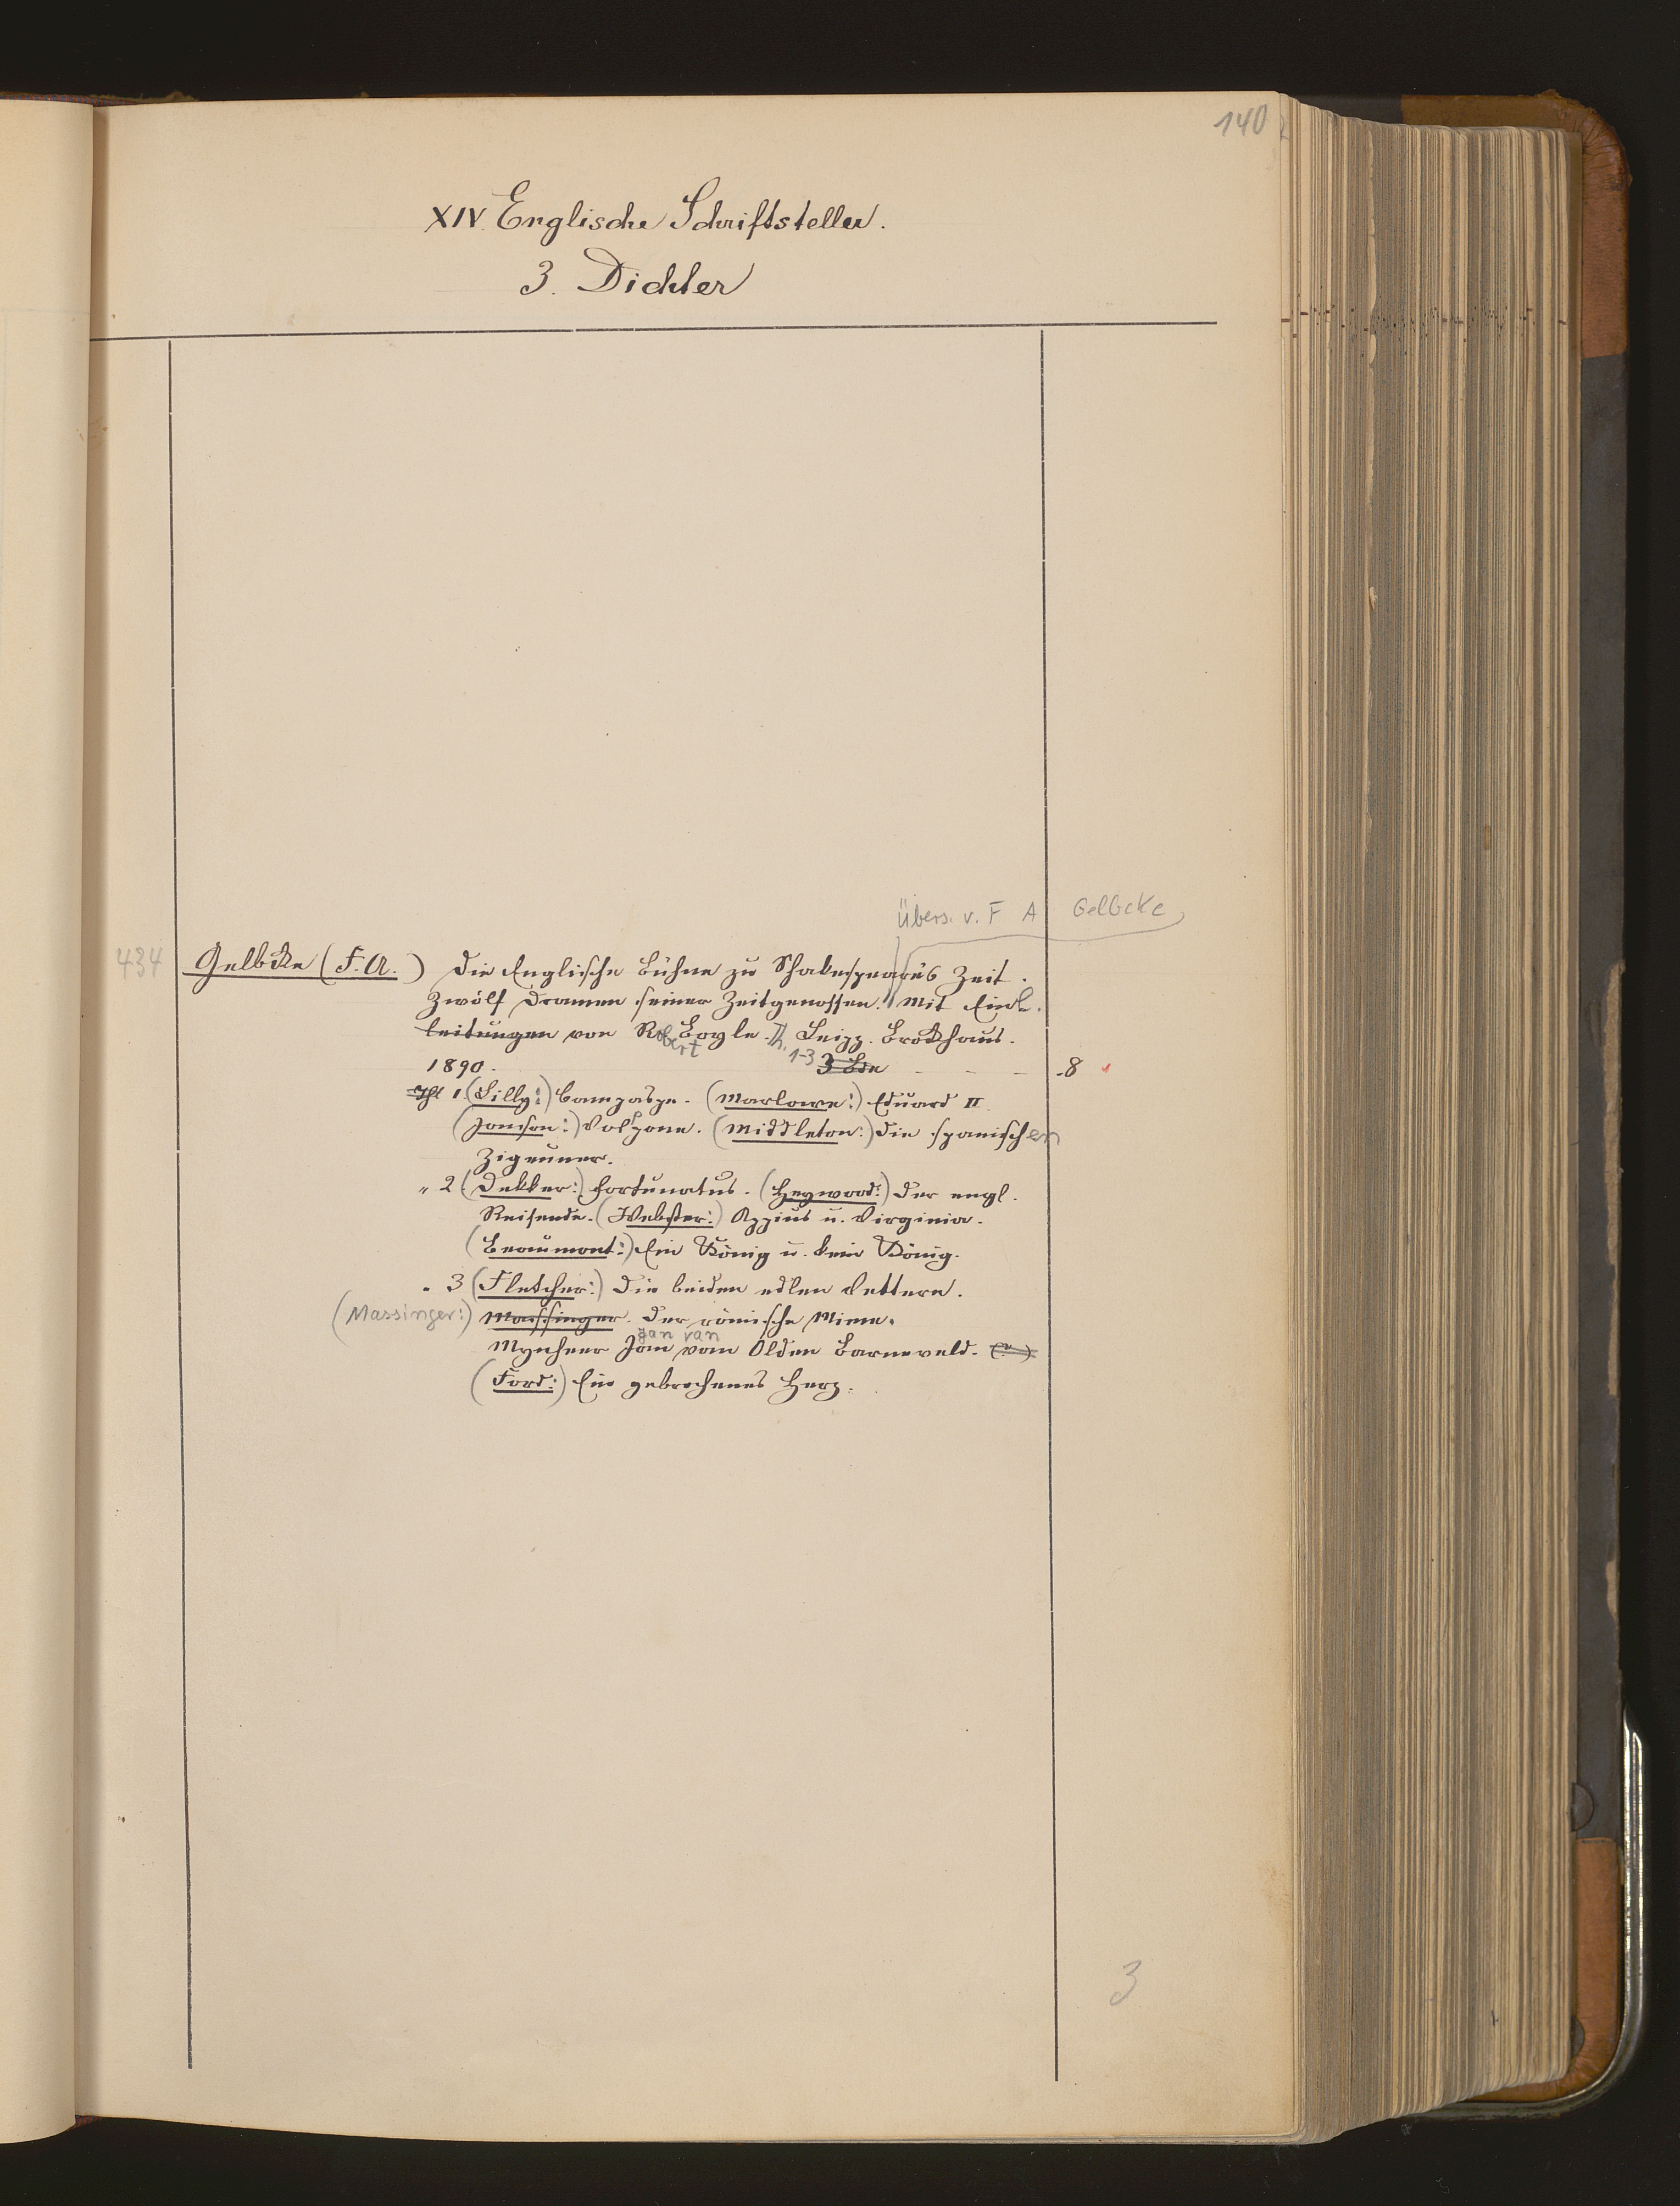 140
XIV. Englische Schriftsteller.
3. Dichter
Übers. v. F A Gelbcke
434 Gelbcke (F. A.) Die Englische Bühne zu Shakespeare's Zeit.
Zwölf Dramen seiner Zeitgenossen. Mit Einl.
leitungen von Robert Boyle. Leipz. Brockhaus.
1890. Th. 1-3 3 Bde - - - 8
Thl 1. (Lilly:) Campaspe. (Marlowe:) Eduard II.
(Jonson:) Volpone. (Middleton:) Die spanischen
Zigeuner.
" 2 (Dekker:) Fortunatus. (Heywood:) Der engl.
Reisende. (Webster:) Appius u. Virginia.
(Beaumont:) Ein König u. kein König.
" 3 (Fletcher:) Die beiden edlen Vettern.
(Massinger:) Massinger. Der römische Mime.
Jan van
Mynheer Jan vom Olden Barneveld.
(Ford:) Ein gebrochenes Herz.
3